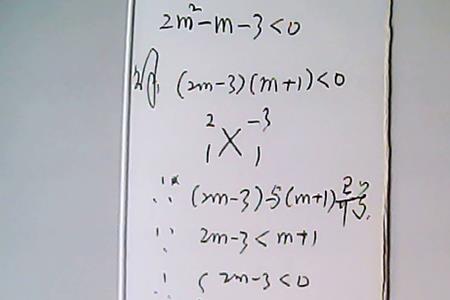 2m²-m-3<0
(2m-3)(m+1)<0
2 -3
1 1
∵ (2m-3)与(m+1)异号
∵ 2m-3<m+1
∴ { 2m-3<0